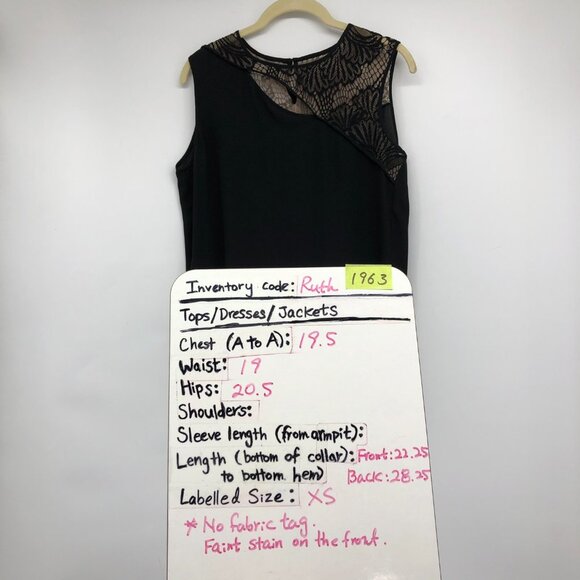 Inventory code: Ruth 1963
Tops/Dresses/Jackets
Chest (A to A): 19.5
Waist: 19
Hips: 20.5
Shoulders:
Sleeve length (from armpit):
Length (bottom of collar): Front: 22.25
to bottom hem) Back: 28.25
Labelled Size: XS
* No fabric tag.
Faint stain on the front.